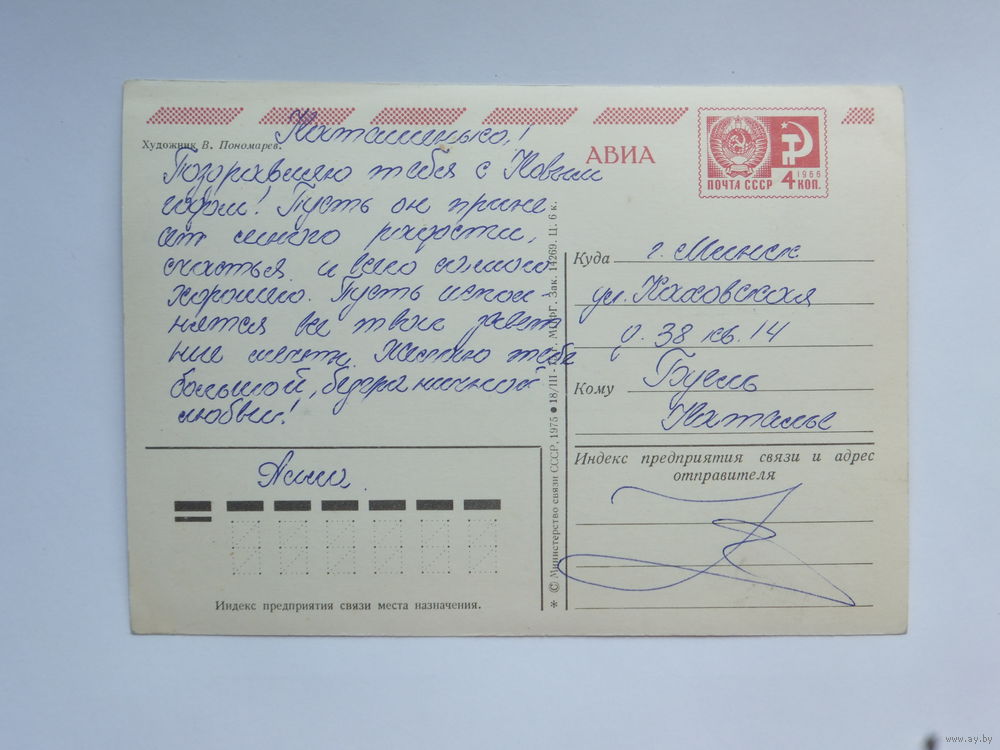 Художник В. Пономарев.
Наташенька!
Поздравляю тебя с Новым
годом! Пусть он прине-
сет много радости,
счастья и всего самого
хорошего. Пусть испол-
нятся все твои завет
ные мечты. Желаю тебе
большой, безграничной
любви!
Анна
Индекс предприятия связи места назначения.
* © Министерство связи СССР, 1975 ● 18/III- МПФГ. Зак. 14269. Ц. 6 к.
АВИА
ПОЧТА СССР 4 1966 КОП.
Куда г. Минск
ул. Каховская
д. 38 кв. 14
Кому Буель
Наталье
Индекс предприятия связи и адрес
отправителя
www.ay.by